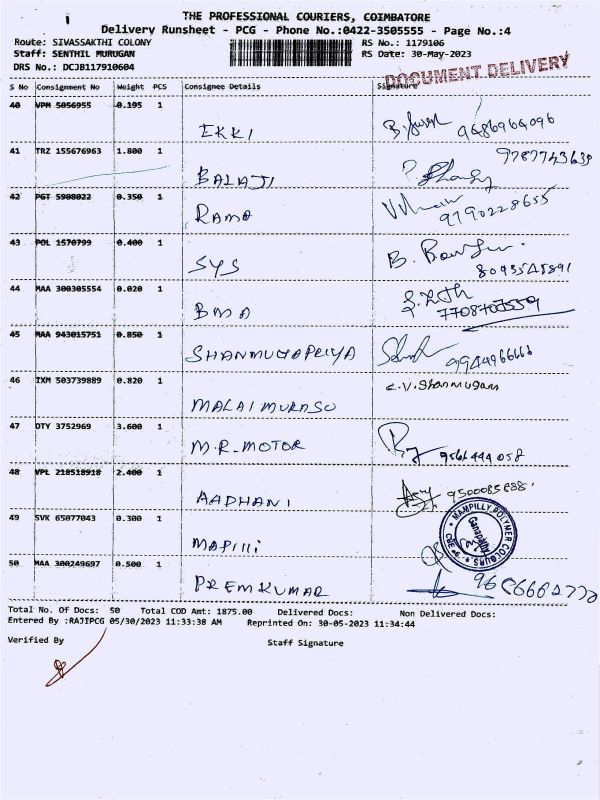 THE PROFESSIONAL COURIERS, COIMBATORE
Delivery Runsheet - PCG - Phone No.:0422-3505555 - Page No.:4
Route: SIVASSAKTHI COLONY RS No.: 1179106
Staff: SENTHIL MURUGAN RS Date: 30-May-2023
DRS No.: DCJB117910604
DOCUMENT DELIVERY
S No Consignment No Weight PCS Consignee Details Signature
40 VPM 5056955 0.195 1
EKKI 9486964096
41 TRZ 155676963 1.800 1 9787743639
BALAJI
42 PGT 5908022 0.350 1
RAMA 9790228655
43 POL 1570799 0.400 1
SYS 8093545891
44 MAA 300305554 0.020 1
BMA
45 MAA 943015751 0.850 1
SHANMUGAPRIYA 9944966666
46 IXM 503739889 0.820 1 C.V. Shanmugam
MALAIMURASU
47 OTY 3752969 3.600 1
M.R. MOTOR 9566444058
48 VPL 218518918 2.400 1
AADHANI
49 SVK 65077043 0.300 1
MAMPILLY POLYMER COLOURS
CBE-6
Ganapathy
50 MAA 300249697 0.500 1
PREMKUMAR
Total No. Of Docs: 50 Total COD Amt: 1875.00 Delivered Docs: Non Delivered Docs:
Entered By :RAJIPCG 05/30/2023 11:33:38 AM Reprinted On: 30-05-2023 11:34:44
Verified By Staff Signature